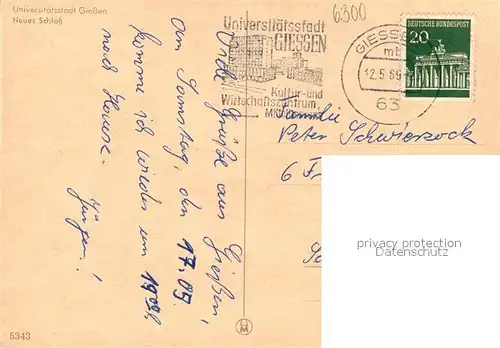 Universitätsstadt Gießen
Neues Schloß
Viele Grüße aus Gießen,
am Samstag, den 17.05.
komme ich wieder um 19 00 h
nach Hause.
Jürgen!
5343
6300
Universitätsstadt
GIESSEN
Kultur- und
Wirtschaftszentrum,
GIESSE
mb
12.5.69
63
DEUTSCHE BUNDESPOST
20
Familie
Peter Schwierzock
6 F
privacy protection
Datenschutz